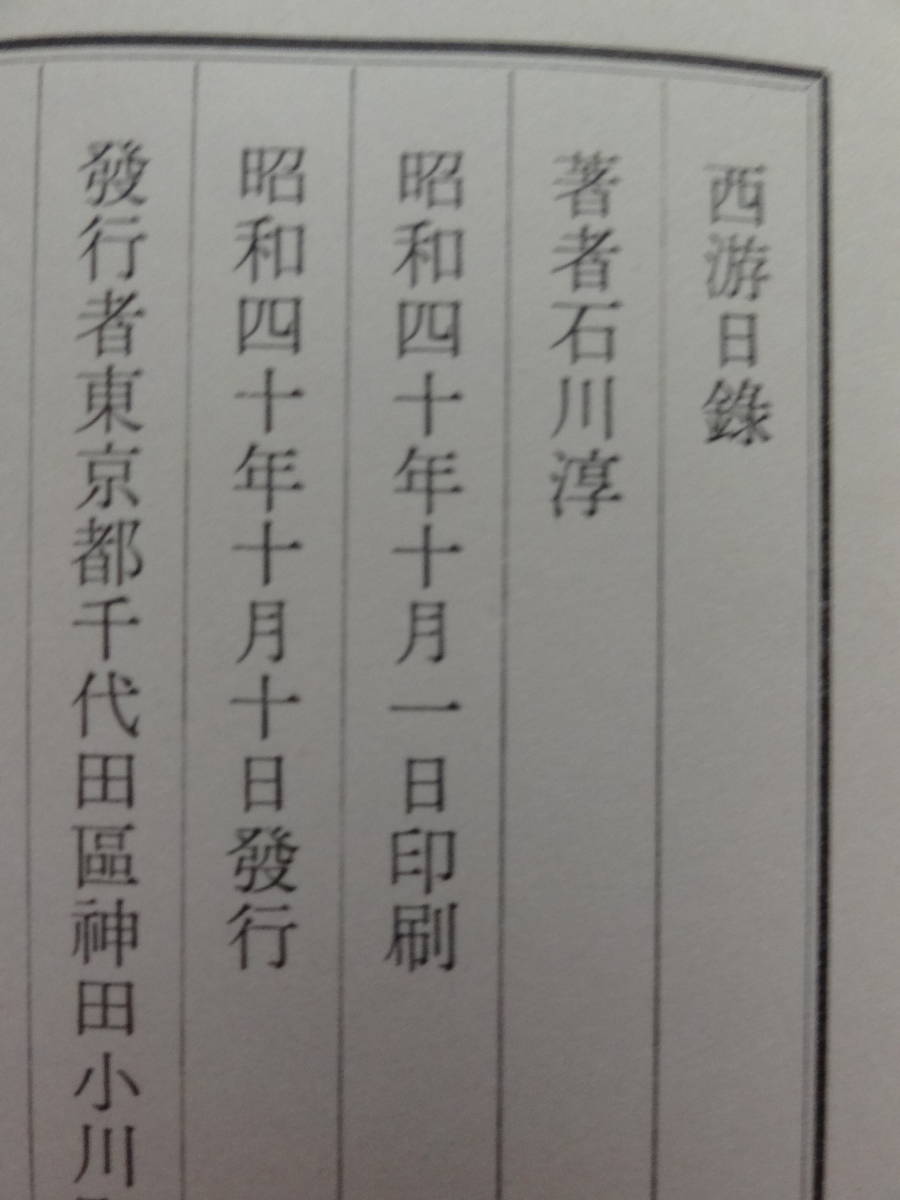 西游日錄
著者石川淳
昭和四十年十月一日印刷
昭和四十年十月十日發行
發行者東京都千代田區神田小川